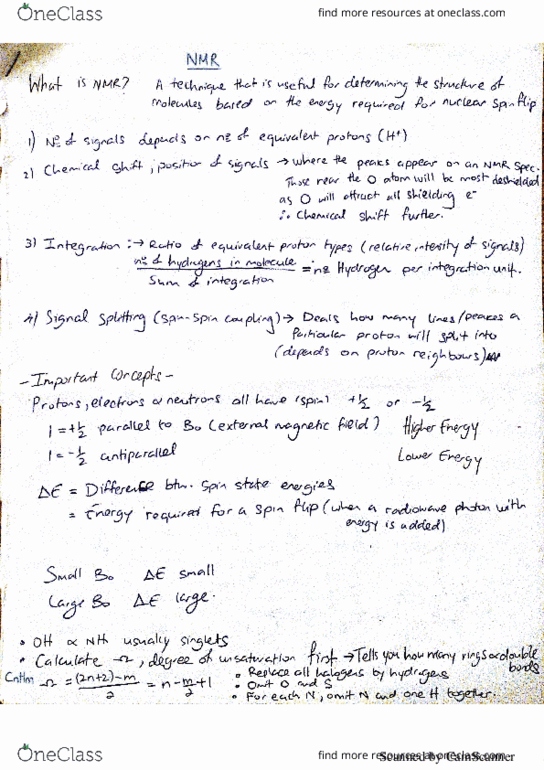 OneClass
find more resources at oneclass.com
NMR
What is NMR? A technique that is useful for determining the structure of
molecules based on the energy required for nuclear spin flip
1) Nº of signals depends on nº of equivalent protons (H⁺)
2) Chemical shift, position of signals → where the peaks appear on an NMR spec.
Those near the O atom will be most deshielded
as O will attract all shielding e⁻
∴ Chemical shift further.
3) Integration :→ Ratio of equivalent proton types (relative intensity of signals)
nº of hydrogens in molecule / Sum of integration = nº Hydrogen per integration unit.
4) Signal splitting (spin-spin coupling) → Deals how many lines/peaks a
particular proton will split into
(depends on proton neighbours)
- Important Concepts -
Protons, electrons & neutrons all have 'spin' +½ or -½
I = +½ parallel to B₀ (external magnetic field) Higher Energy
I = -½ antiparallel
Lower Energy
ΔE = Difference btw. spin state energies
= Energy required for a spin flip (when a radiowave photon with
energy is added)
Small B₀ ΔE small
Large B₀ ΔE large.
• OH & NH usually singlets
• Calculate Ω, degree of unsaturation first → Tells you how many rings or double
bonds
CnHm Ω = (2n+2)-m / 2 = n - m/2 + 1
• Replace all halogens by hydrogens
• Omit O and S
• For each N, omit N and one H together.
OneClass
find more resources at oneclass.com
Scanned by CamScanner